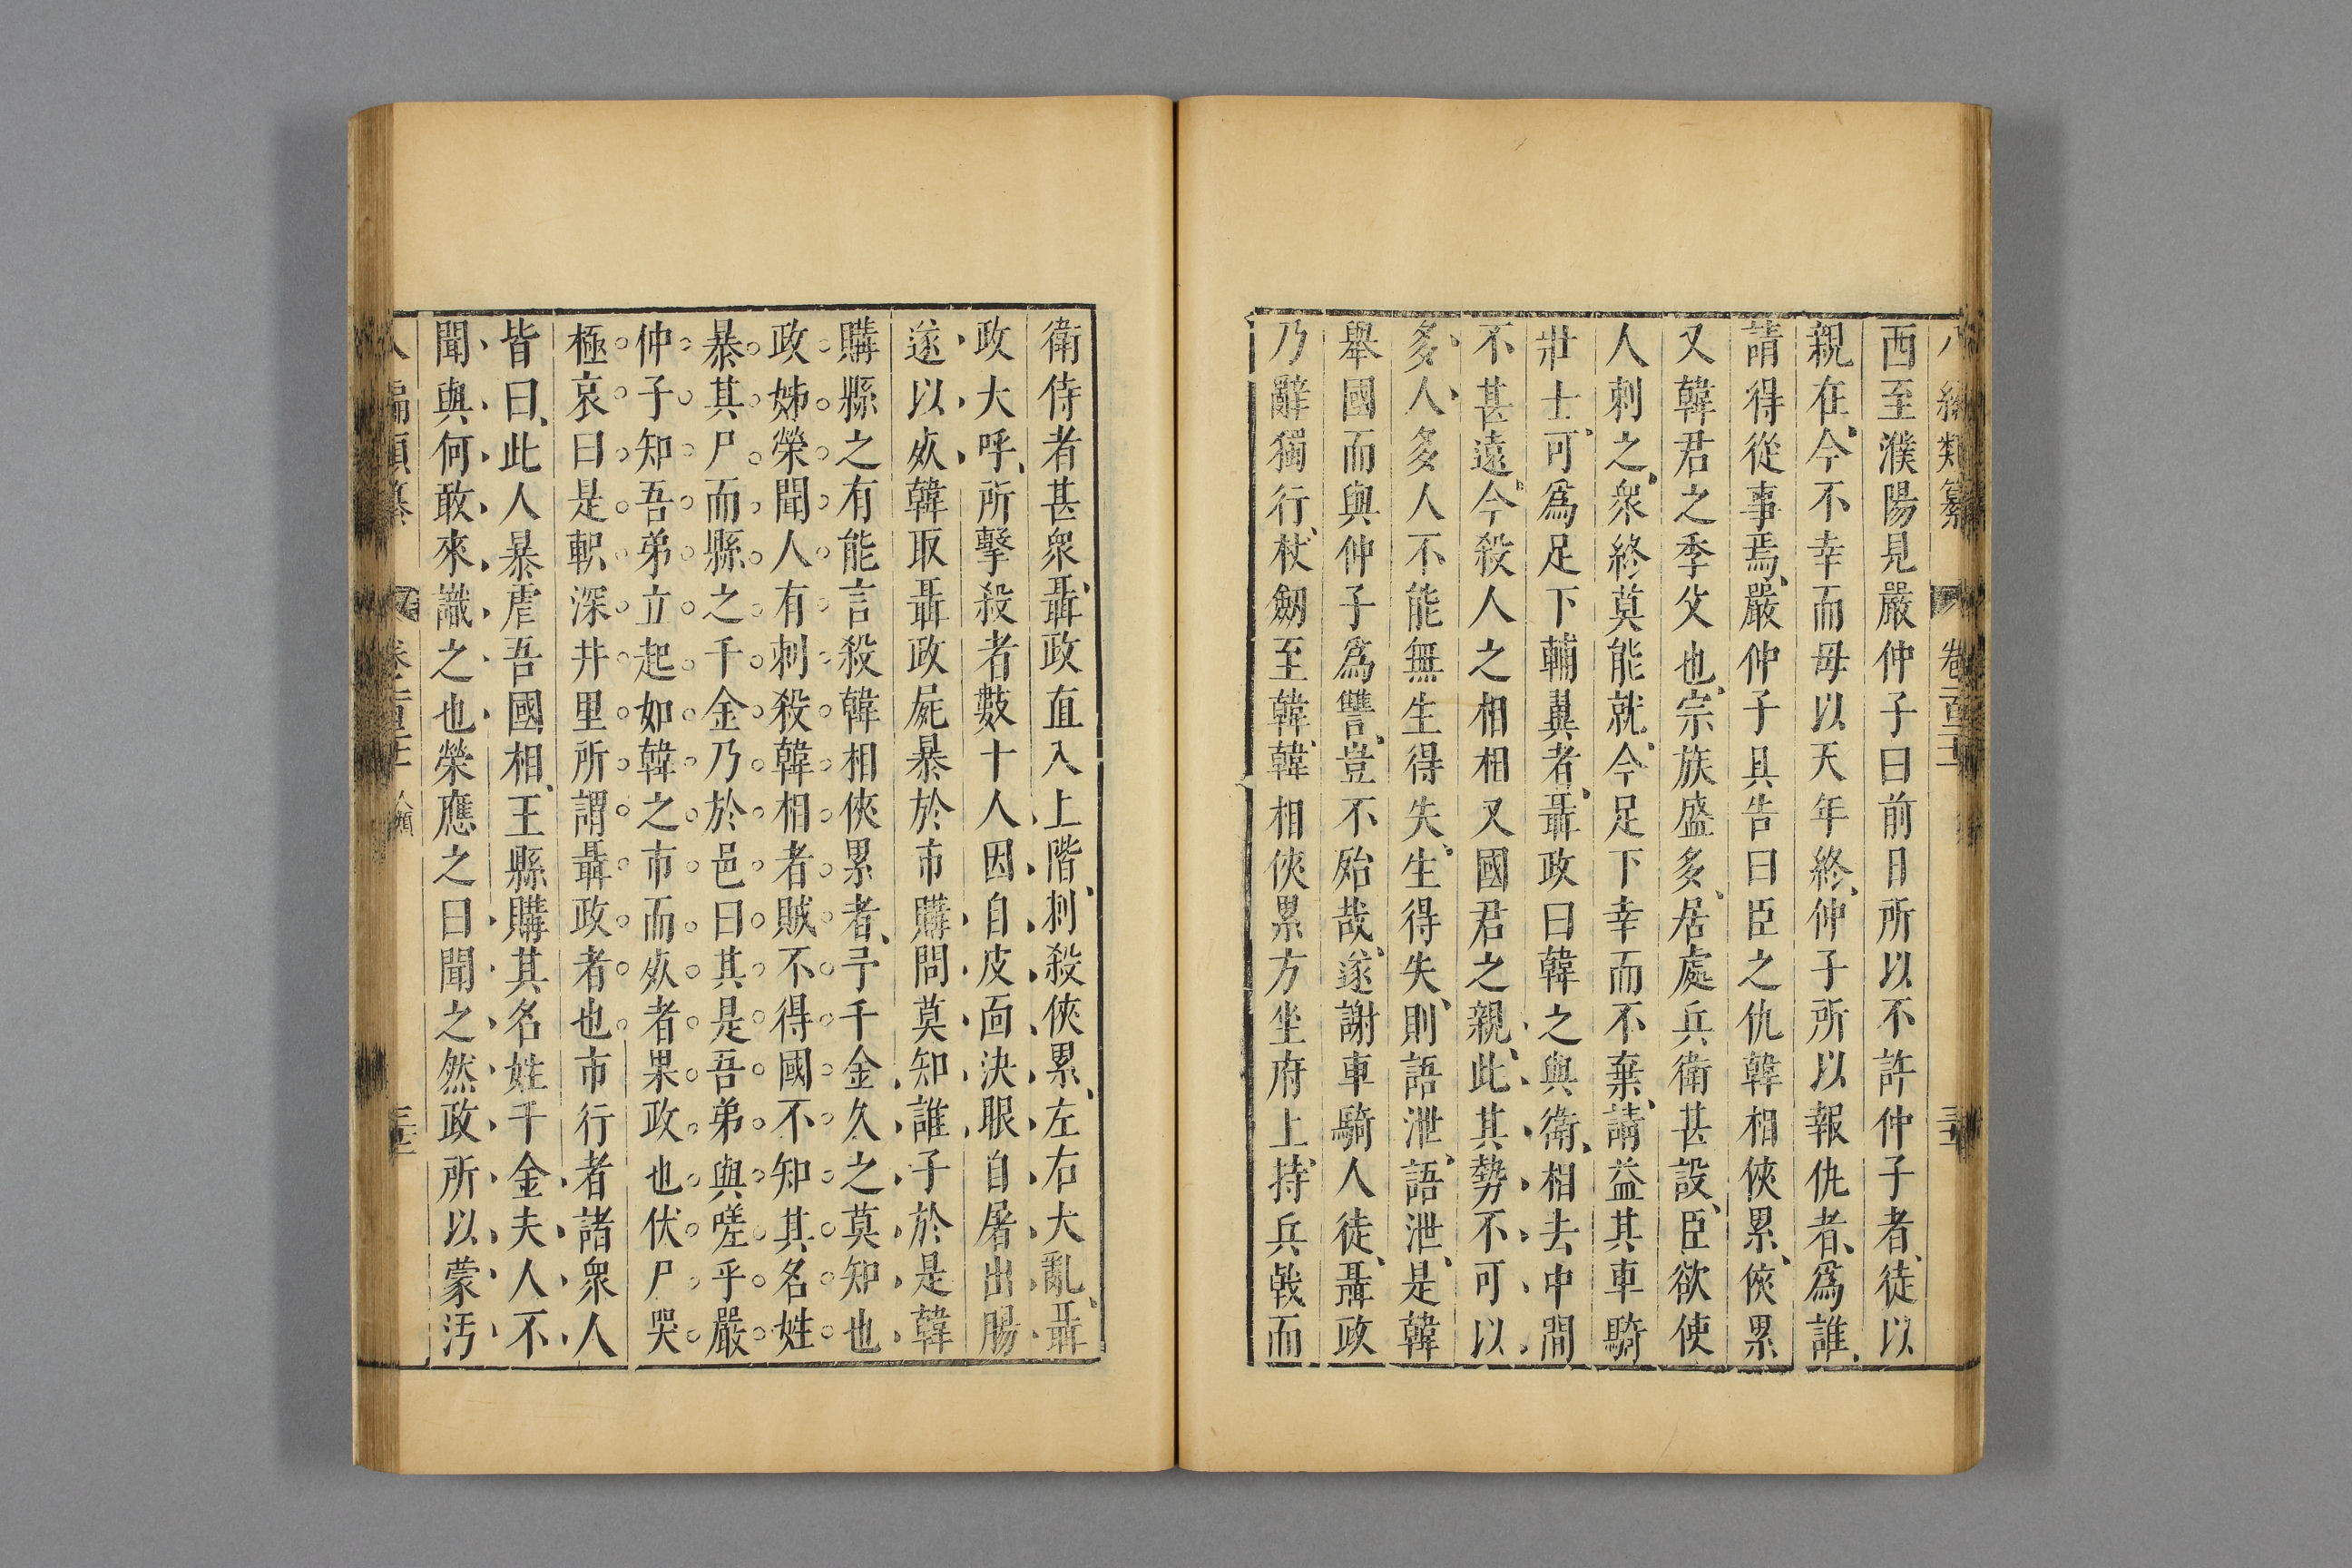 西至濮陽見嚴仲子曰前日所以不許仲子者、徒以
親在、今不幸而母以天年終、仲子所以報仇者、爲誰、
請得從事焉、嚴仲子具告曰臣之仇韓相俠累、俠累
又韓君之季父也、宗族盛多、居處兵衛甚設、臣欲使
人刺之、衆終莫能就、今足下幸而不棄、請益其車騎
壯士、可爲足下輔翼者、聶政曰韓之與衛、相去中間
不甚遠、今殺人之相相又國君之親、此其勢不可以
多人、多人不能無生得失、生得失、則語泄、語泄、是韓
舉國而與仲子爲讐、豈不殆哉、遂謝車騎人徒、聶政
乃辭獨行、杖劒至韓、韓相俠累方坐府上、持兵戟而
衛侍者甚衆、聶政直入上階、刺殺俠累、左右大亂、聶
政大呼、所擊殺者數十人因自皮面決眼自屠出腸
遂以㱙韓取聶政屍暴於市購問莫知誰子於是韓
購縣之有能言殺韓相俠累者、予千金久之莫知也
政姊榮聞人有刺殺韓相者賊不得國不知其名姓
暴其尸而縣之千金乃於邑曰其是吾弟與嗟乎嚴
仲子知吾弟立起如韓之市而㱙者果政也伏尸哭
極哀曰是軹深井里所謂聶政者也市行者諸衆人
皆曰、此人暴虐吾國相、王縣購其名姓千金夫人不
聞與何敢來識之也榮應之曰聞之然政所以蒙汚